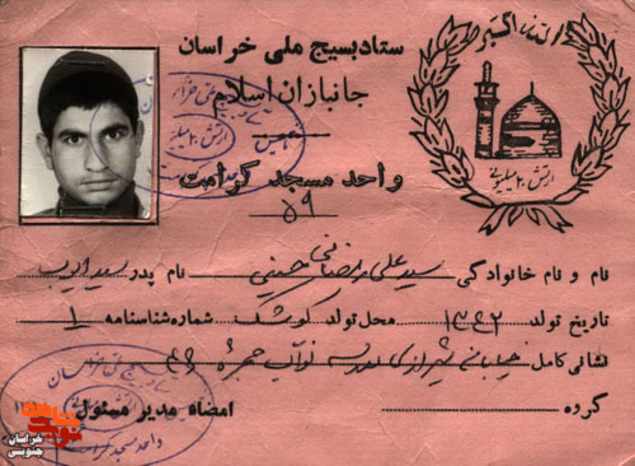 ستاد بسیج ملی خراسان
جانبازان اسلام
واحد مسجد کرامت
۵۹
الله اکبر
ارتش ۲۰ میلیونی
نام و نام خانوادگی سید علی رضائی حسینی نام پدر سید ایوب
تاریخ تولد ۱۳۴۲ محل تولد کوشک شماره شناسنامه ۱
نشانی کامل خیابان شیرازی مدرسه نواب حجرهٔ ۴۶
گروه
امضاء مدیر مسئول
خراسان
جنوبی